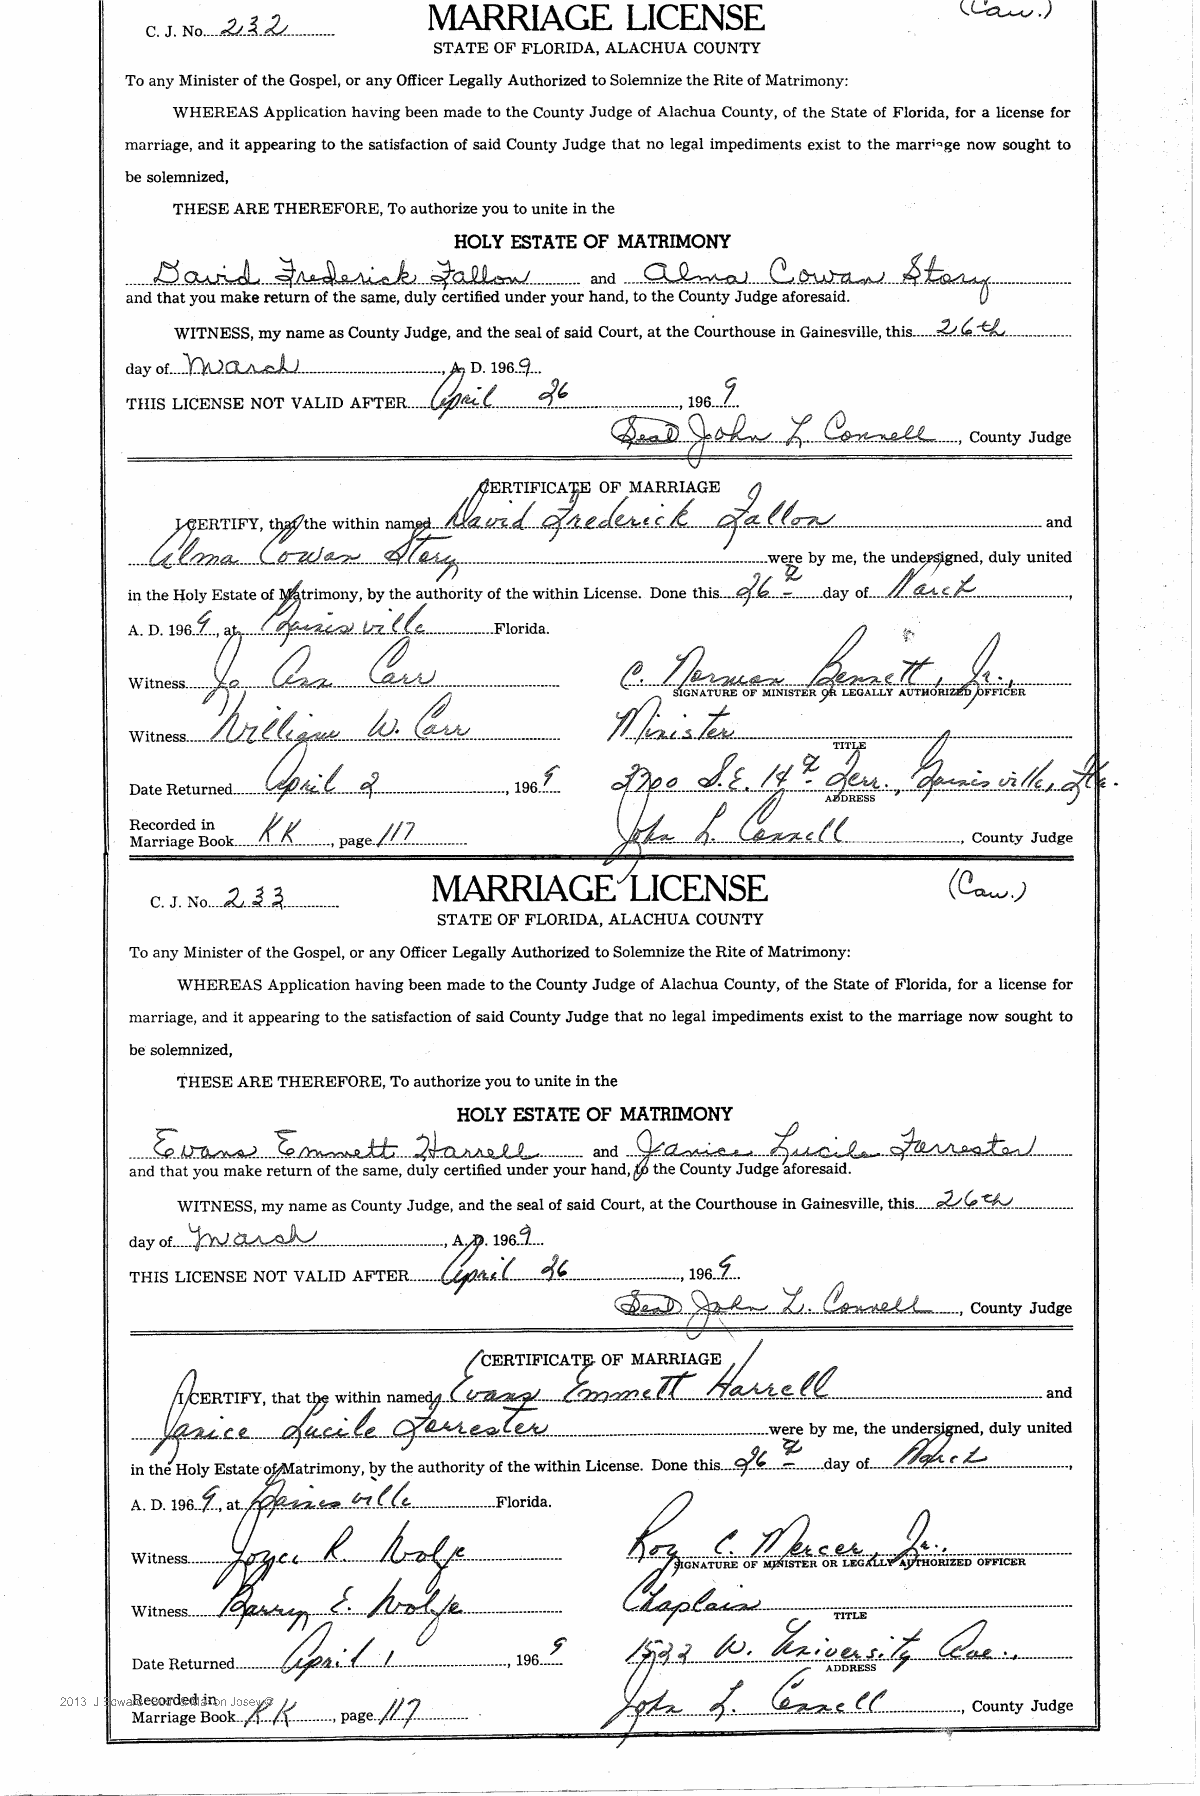 (Cau.)
C. J. No. 232 MARRIAGE LICENSE
STATE OF FLORIDA, ALACHUA COUNTY
To any Minister of the Gospel, or any Officer Legally Authorized to Solemnize the Rite of Matrimony:
WHEREAS Application having been made to the County Judge of Alachua County, of the State of Florida, for a license for
marriage, and it appearing to the satisfaction of said County Judge that no legal impediments exist to the marriage now sought to
be solemnized,
THESE ARE THEREFORE, To authorize you to unite in the
HOLY ESTATE OF MATRIMONY
David Frederick Fallon and Alma Cowan Story
and that you make return of the same, duly certified under your hand, to the County Judge aforesaid.
WITNESS, my name as County Judge, and the seal of said Court, at the Courthouse in Gainesville, this 26th
day of March, A. D. 1969
THIS LICENSE NOT VALID AFTER April 26, 1969
(Seal) John L. Connell, County Judge
CERTIFICATE OF MARRIAGE
I CERTIFY, that the within named David Frederick Fallon and
Alma Cowan Story were by me, the undersigned, duly united
in the Holy Estate of Matrimony, by the authority of the within License. Done this 26th day of March,
A. D. 1969, at Gainesville Florida.
Witness Jo Ann Carr C. Norman Bennett, Jr.,
SIGNATURE OF MINISTER OR LEGALLY AUTHORIZED OFFICER
Witness William W. Carr Minister
TITLE
Date Returned April 2, 1969 2700 S.E. 14th Terr., Gainesville, Fla.
ADDRESS
Recorded in
Marriage Book KK, page 117 John L. Connell, County Judge
C. J. No. 233 MARRIAGE LICENSE (Cau.)
STATE OF FLORIDA, ALACHUA COUNTY
To any Minister of the Gospel, or any Officer Legally Authorized to Solemnize the Rite of Matrimony:
WHEREAS Application having been made to the County Judge of Alachua County, of the State of Florida, for a license for
marriage, and it appearing to the satisfaction of said County Judge that no legal impediments exist to the marriage now sought to
be solemnized,
THESE ARE THEREFORE, To authorize you to unite in the
HOLY ESTATE OF MATRIMONY
Evans Emmett Harrell and Janice Lucile Forrester
and that you make return of the same, duly certified under your hand, to the County Judge aforesaid.
WITNESS, my name as County Judge, and the seal of said Court, at the Courthouse in Gainesville, this 26th
day of March, A. D. 1969
THIS LICENSE NOT VALID AFTER April 26, 1969
(Seal) John L. Connell, County Judge
CERTIFICATE OF MARRIAGE
I CERTIFY, that the within named Evans Emmett Harrell and
Janice Lucile Forrester were by me, the undersigned, duly united
in the Holy Estate of Matrimony, by the authority of the within License. Done this 26th day of March,
A. D. 1969, at Gainesville Florida.
Witness Joyce R. Wolfe Roy C. Mercer, Jr.,
SIGNATURE OF MINISTER OR LEGALLY AUTHORIZED OFFICER
Witness Barry E. Wolfe Chaplain
TITLE
Date Returned April 1, 1969 1522 W. University Ave.,
ADDRESS
Recorded in
Marriage Book KK, page 117 John L. Connell, County Judge